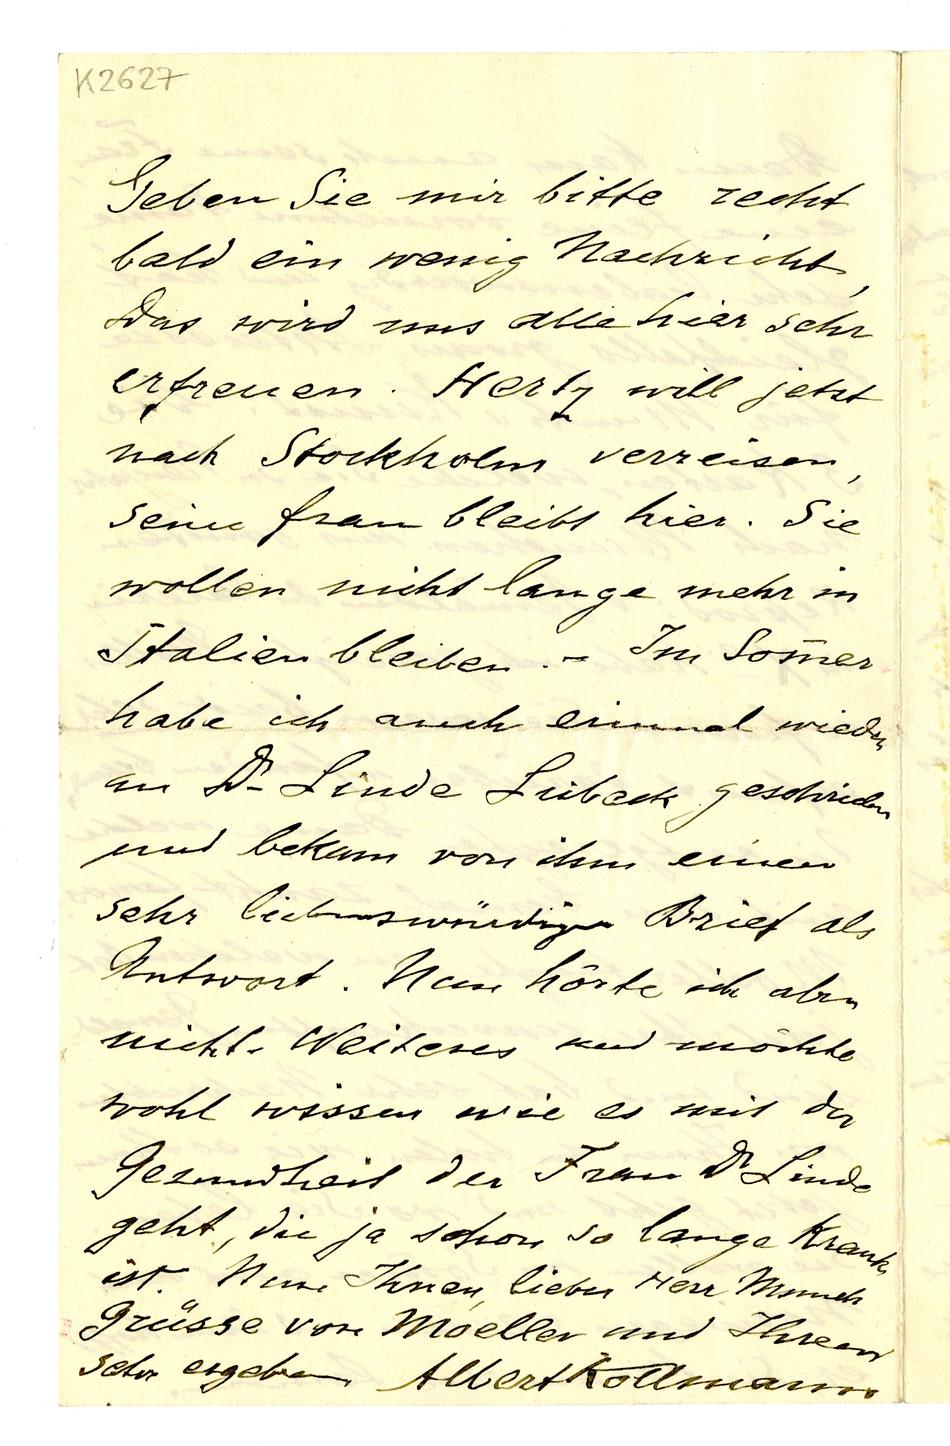 K2627
Geben Sie mir bitte recht
bald ein wenig Nachricht,
das wird uns alle hier sehr
erfreuen. Hertz will jetzt
nach Stockholm verreisen,
seine Frau bleibt hier. Sie
wollen nicht lange mehr in
Italien bleiben. – Im Som̄er
habe ich auch einmal wieder
an Dr Linde Lübeck geschrieben
und bekam von ihm einen
sehr liebenswürdigen Brief als
Antwort. Nun hörte ich aber
nichts Weiteres und möchte
wohl wissen wie es mit der
Gesundheit der Frau Dr Linde
geht, die ja schon so lange krank
ist. Nun Ihnen, lieber Herr Munch
Grüsse von Moeller und Ihrem
sehr ergebenen Albert Kollmann